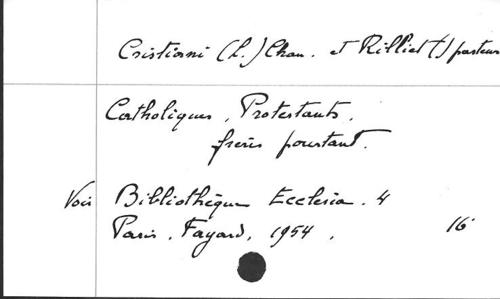 Cristiani (L.) Chan. et Rilliet (J) pasteur
Catholiques, Protestants,
frères pourtant.
Voir Bibliothèque Ecclesia. 4
Paris, Fayard, 1954, 16°